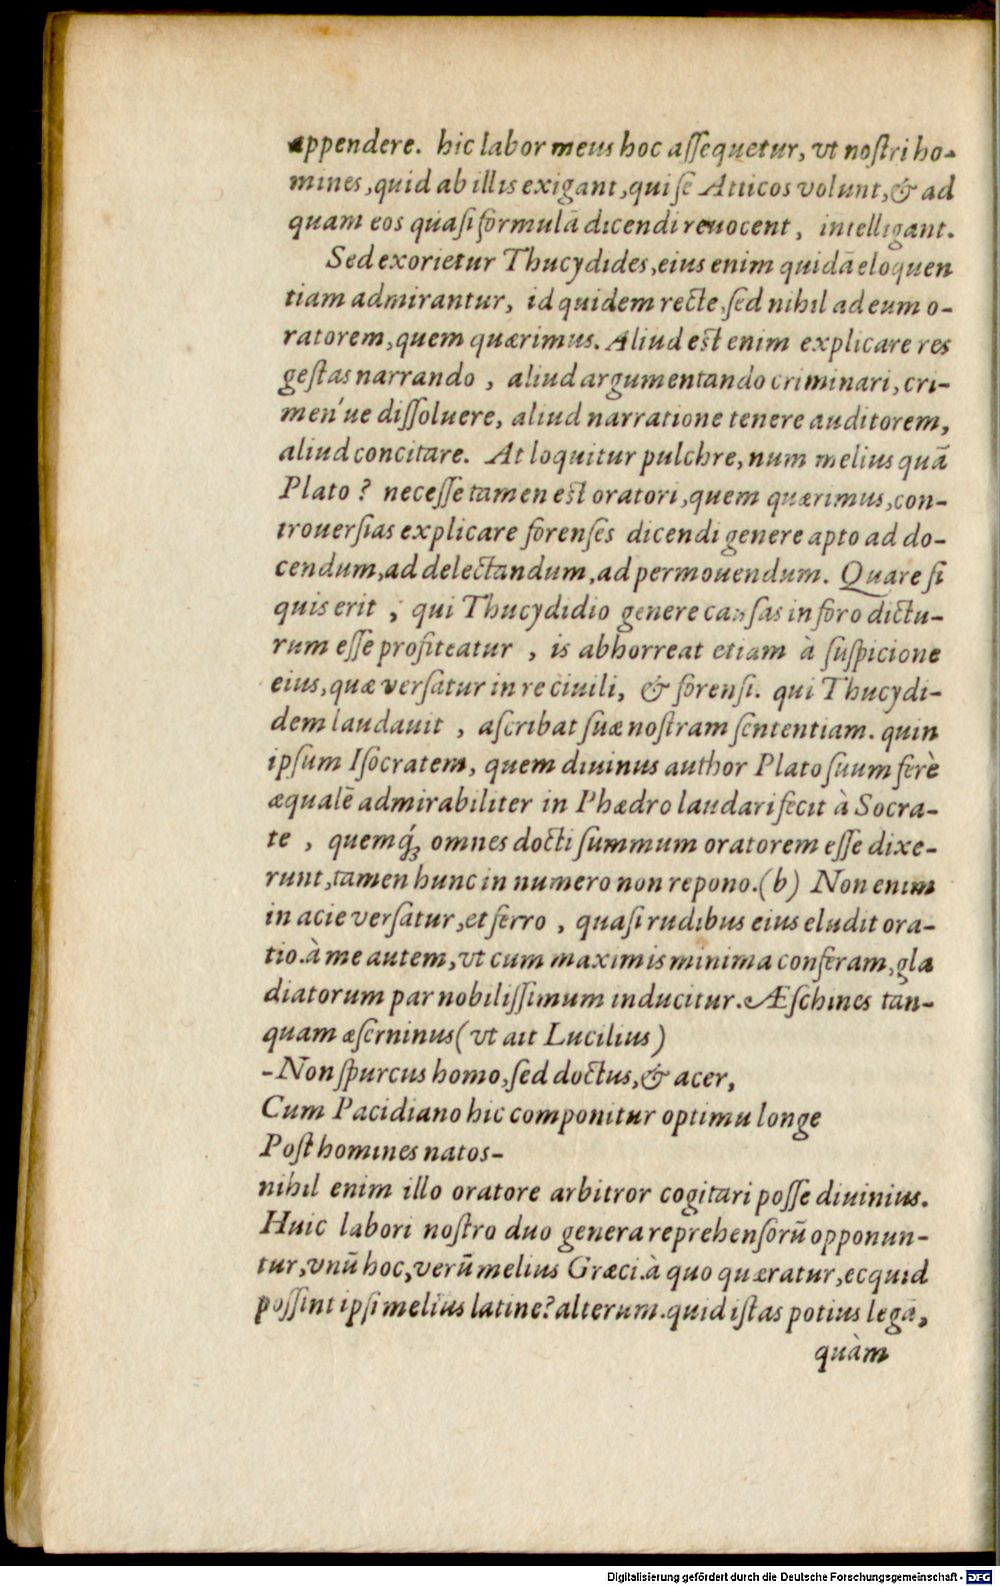 appendere. hic labor meus hoc aſſequetur, vt noſtri ho-
mines, quid ab illis exigant, qui ſe Atticos volunt, & ad
quam eos quaſi formulā dicendi reuocent, intelligant.
Sed exorietur Thucydides, eius enim quidā eloquen
tiam admirantur, id quidem recte, ſed nihil ad eum o-
ratorem, quem quærimus. Aliud eſt enim explicare res
geſtas narrando, aliud argumentando criminari, cri-
men'ue diſſoluere, aliud narratione tenere auditorem,
aliud concitare. At loquitur pulchre, num melius quā
Plato? neceſſe tamen eſt oratori, quem quærimus, con-
trouerſias explicare forenſes dicendi genere apto ad do-
cendum, ad delectandum, ad permouendum. Quare ſi
quis erit, qui Thucydidio genere cauſas in foro dictu-
rum eſſe profiteatur, is abhorreat etiam à ſuſpicione
eius, quæ verſatur in re ciuili, & forenſi. qui Thucydi-
dem laudauit, aſcribat ſuæ noſtram ſententiam. quin
ipſum Iſocratem, quem diuinus author Plato ſuum ferè
æqualē admirabiliter in Phædro laudari fecit à Socra-
te, quemq́; omnes docti ſummum oratorem eſſe dixe-
runt, tamen hunc in numero non repono. (b) Non enim
in acie verſatur, et ferro, quaſi rudibus eius eludit ora-
tio. à me autem, vt cum maximis minima conferam, gla
diatorum par nobiliſſimum inducitur. Æſchines tan-
quam æſerninus (vt ait Lucilius)
-Non ſpurcus homo, ſed doctus, & acer,
Cum Pacidiano hic componitur optimu longe
Poſt homines natos-
nihil enim illo oratore arbitror cogitari poſſe diuinius.
Huic labori noſtro duo genera reprehenſorū opponun-
tur, vnū hoc, verū melius Græci. à quo quæratur, ecquid
poſſint ipſi melius latine? alterum. quid iſtas potius legā,
quàm
Digitalisierung gefördert durch die Deutsche Forschungsgemeinschaft - DFG